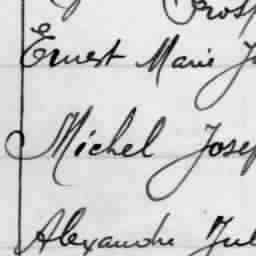 Prosp
Ernest Marie J
Michel Josep
Alexandre Jul